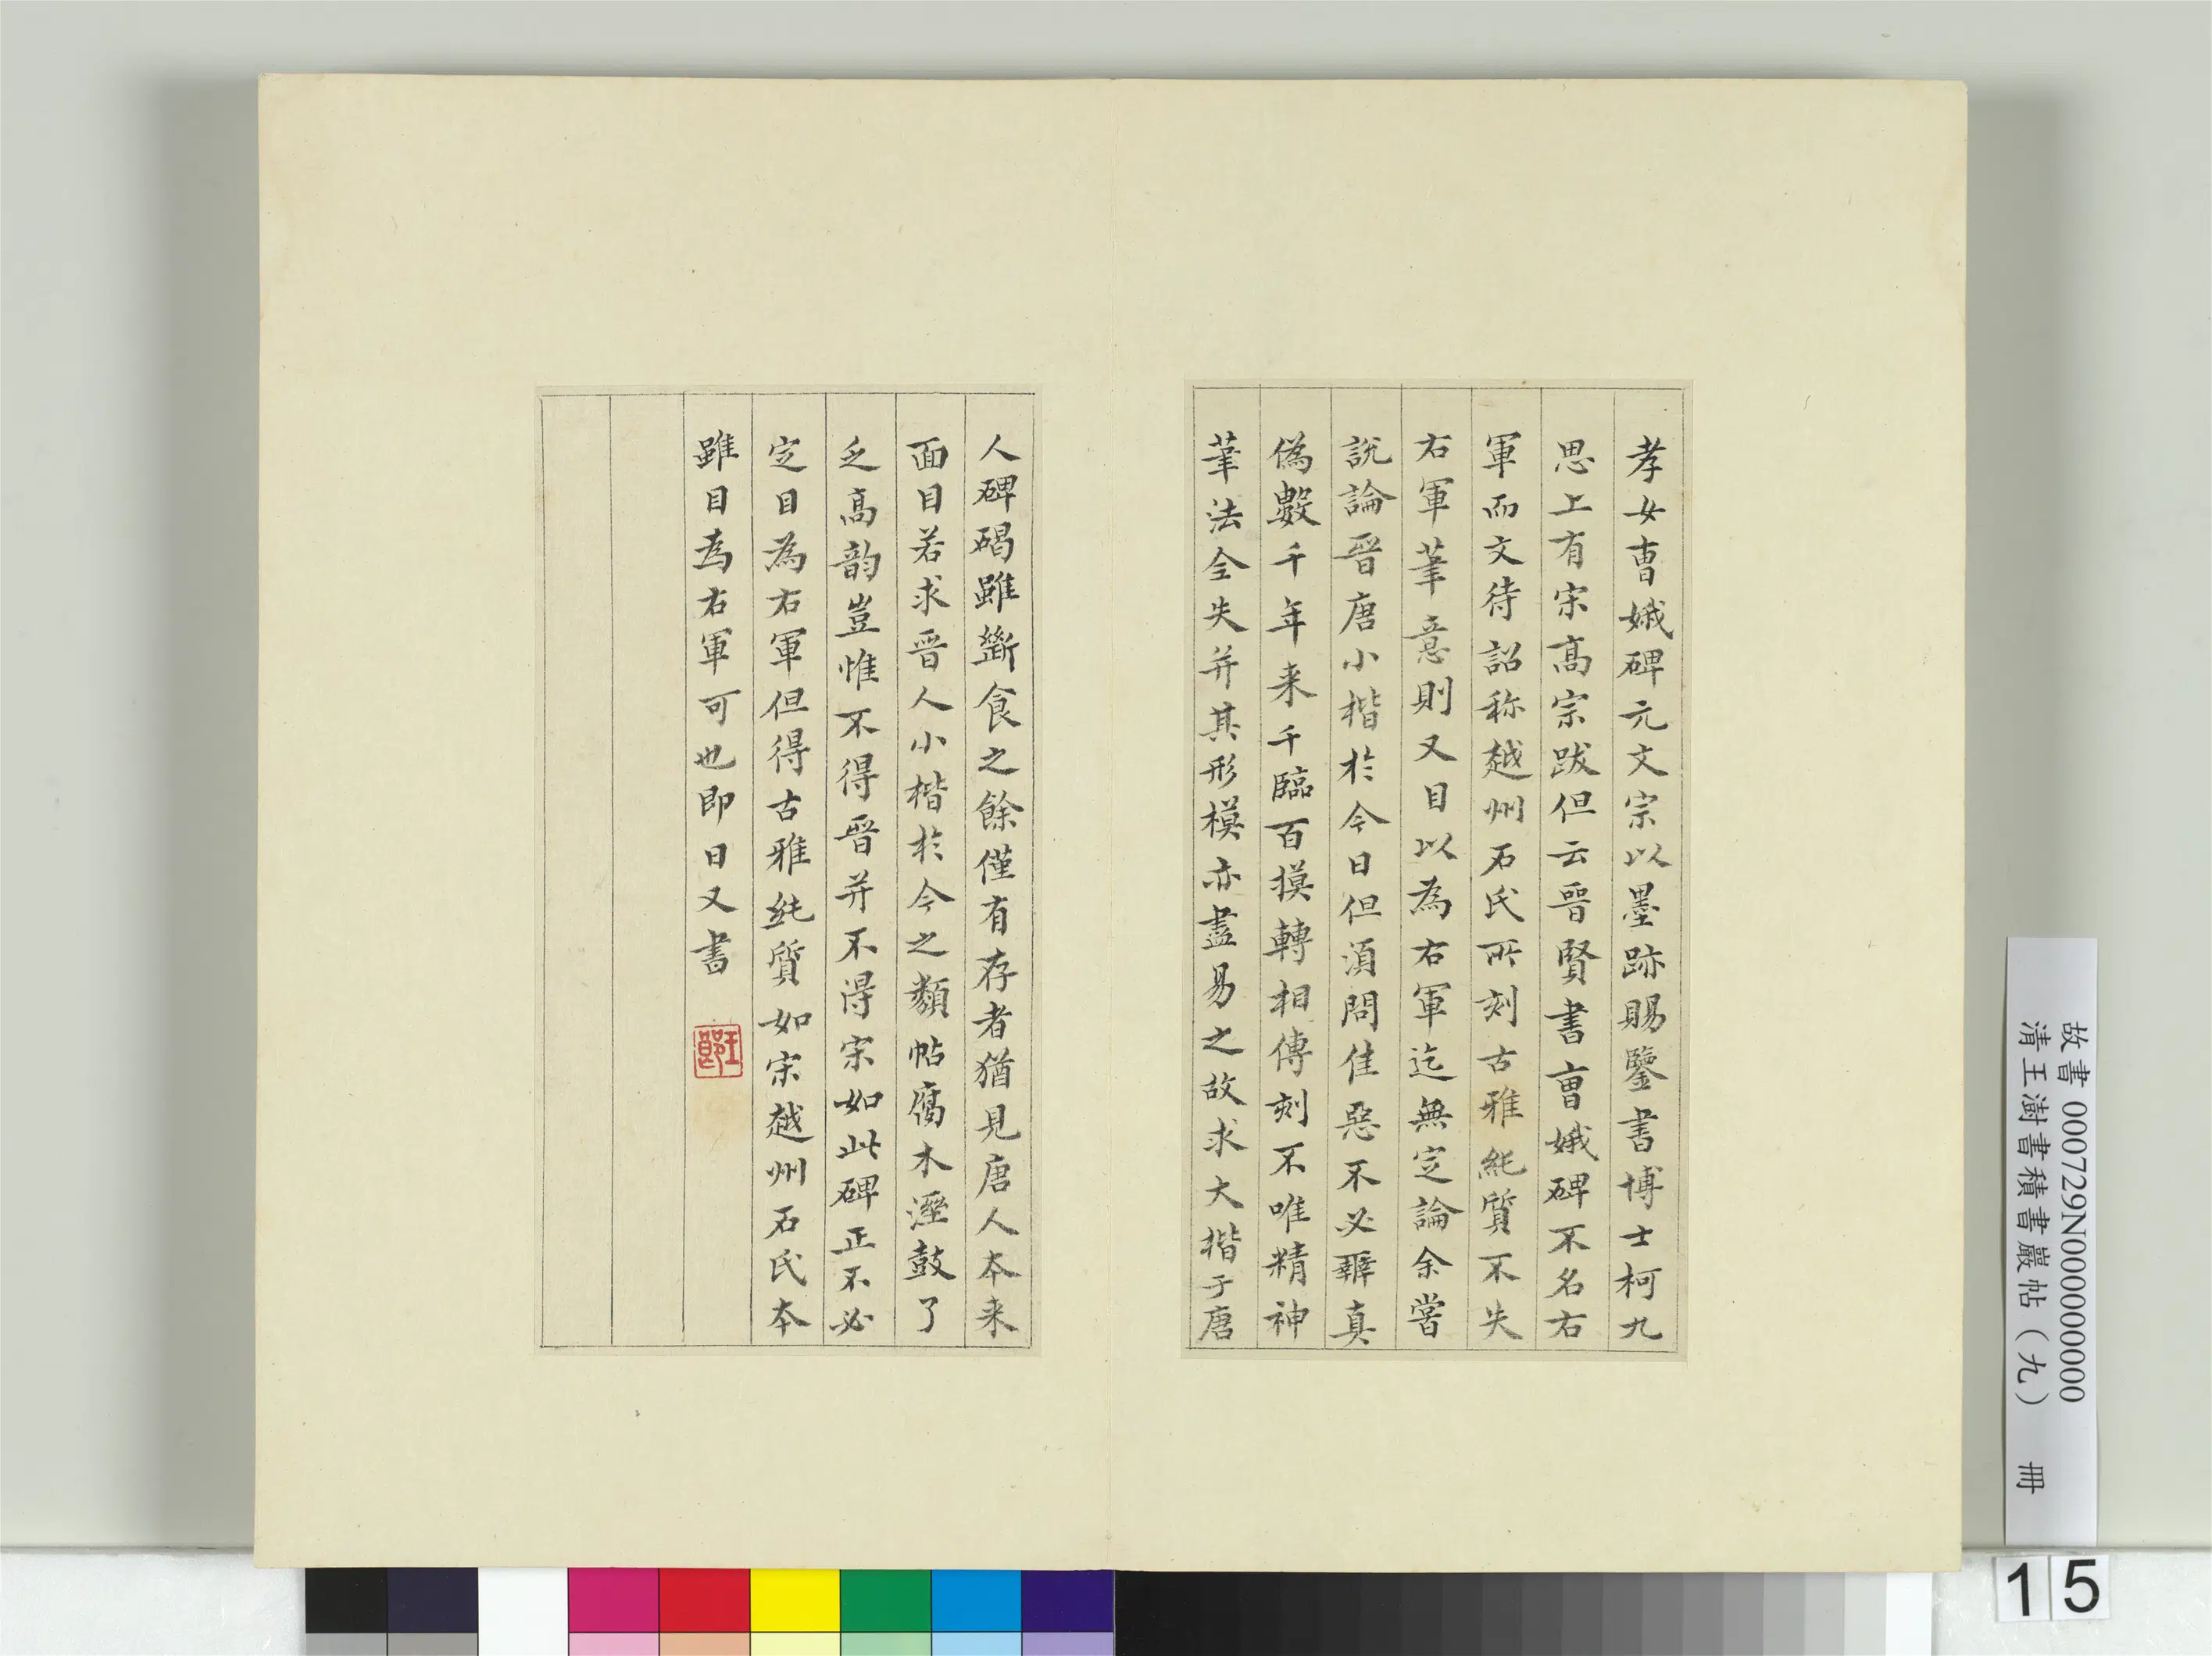 孝女曺娥碑元文宗以墨跡賜鑒書博士柯九
思上有宋髙宗跋但云晉賢書曺娥碑不名右
軍而文待詔称越州石氏所刻古雅純質不失
右軍筆意則又目以為右軍迄無定論余嘗
說論晉唐小楷於今日但須問佳惡不必辨真
偽數千年来千臨百摸轉相傳刻不唯精神
筆法全失并其形模亦盡易之故求大楷于唐
人碑碣雖斷食之餘僅有存者猶見唐人本来
面目若求晉人小楷於今之類帖腐木溼鼓了
乏髙韵豈惟不得晉并不得宋如此碑正不必
定目為右軍但得古雅純質如宋越州石氏本
雖目為右軍可也即日又書
故書 000729N000000000
清王澍書積書巖帖（九） 冊
15